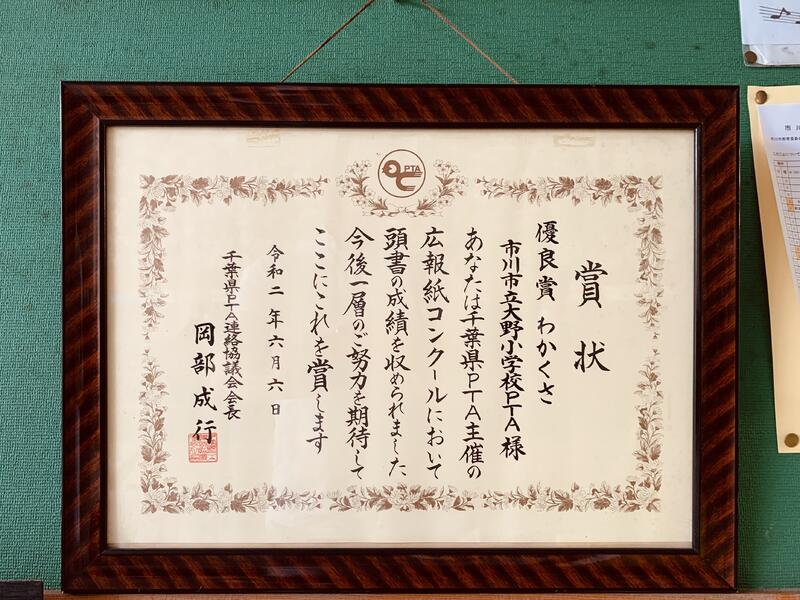 PTA
賞状
優良賞 わかくさ
市川市立大野小学校PTA 様
あなたは千葉県PTA主催の
広報紙コンクールにおいて
頭書の成績を収められました
今後一層のご努力を期待して
ここにこれを賞します
令和二年六月六日
千葉県PTA連絡協議会会長
岡部成行
市川